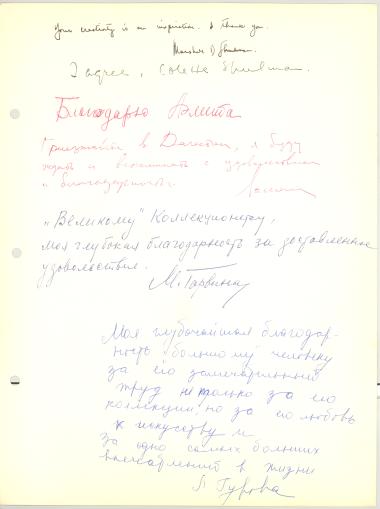 Your creativity is an inspiration. I thank you.
Marshall D. Shulman.
I agree, Colette Shulman.
Благодарю Аэлита
Приезжайте в Дагестан, я буду
ждать и вспоминать с удовольствием
и благодарностью.
„Великому" Коллекционеру,
моя глубокая благодарность за доставленное
удовольствие.
М. Гарвина
Моя глубочайшая благодар-
ность большому человеку
за его замечательный
труд не только за его
коллекции, но за его любовь
к искусству и
за одно самых больших
впечатлений в жизни
Л Гурова